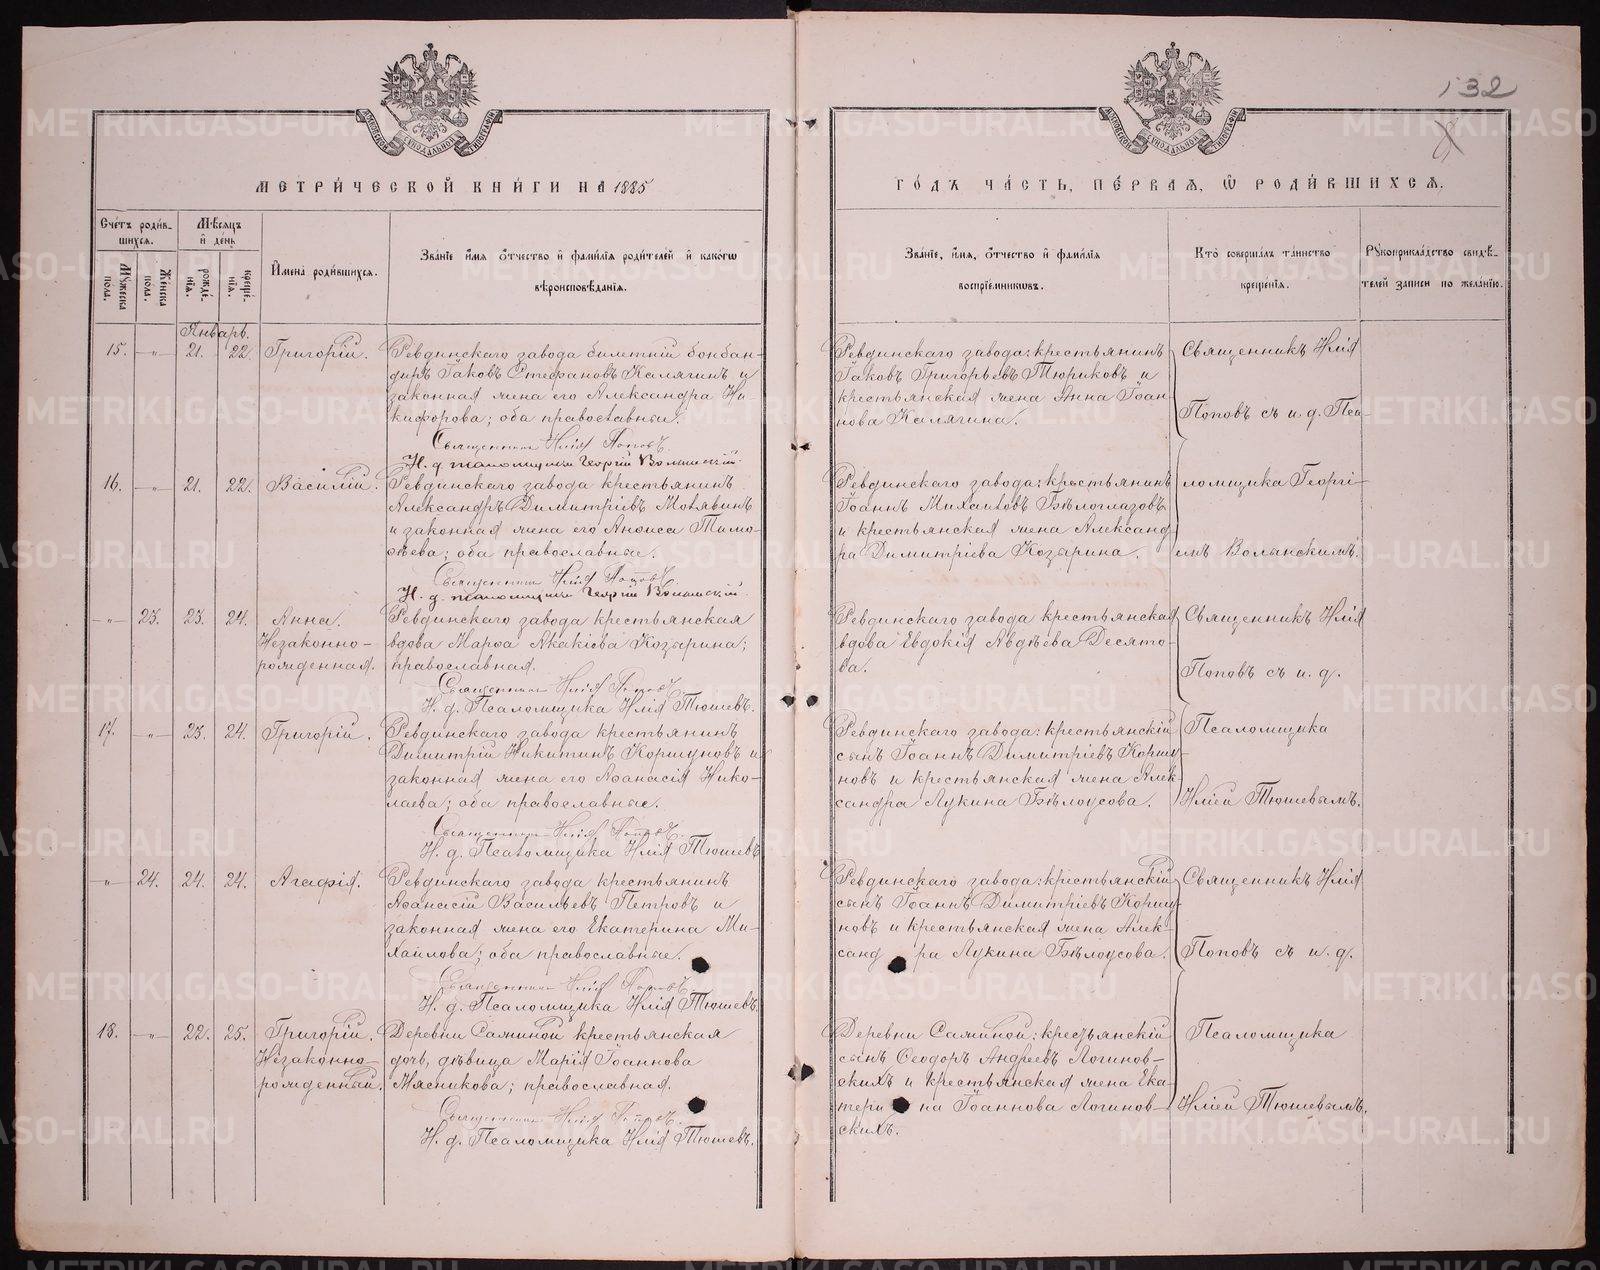 132
МОСКОВСКОЙ СѴНОДАЛЬНОЙ ТИПОГРАФІИ
МОСКОВСКОЙ СѴНОДАЛЬНОЙ ТИПОГРАФІИ
МЕТРИ́ЧЕСКОЙ КНИ́ГИ НА 1885
ГО́ДЪ ЧА́СТЬ, ПЕ́РВАЯ, Ѡ РОДИ́ВШИХСЯ.
Сче́тъ роди́в-
шихся.
Мꙋжеска пола.
Же́нска пола.
Мѣ́сяцъ
и҆ де́нь
рожде́-
нїя.
креще́-
нїя.
И҆мена̀ роди́вшихся.
Зва́нїе и҆́мя ѻ҆́тчество и҆ фами́лїя роди́телей и҆ како́гѡ
вѣроисповѣ́данїя.
Зва́нїе, и҆́мя, ѻ҆́тчество и҆ фами́лїя
воспрїе́мникѡвъ.
Кто̀ соверша́лъ та́инство
креще́нїя.
Рꙋкоприкла́дство свидѣ́-
телей за́писи по жела́нїю.
Январь.
15. -"- 21. 22. Григорій.
Ревдинскаго завода билетній бонбан-
диръ Іаковъ Стефановъ Калягинъ и
законная жена его Александра Ни-
кифорова; оба православные.
Священникъ Илія Поповъ
И. д. псаломщика Георгій Волынскій.
Ревдинскаго завода: крестьянинъ
Іаковъ Григорьевъ Тюриковъ и
крестьянская жена Анна Іоан-
нова Калягина.
Священникъ Илія
Поповъ съ и. д. Пса-
16. -"- 21. 22. Василій.
Ревдинскаго завода крестьянинъ
Александръ Димитріевъ Мотявинъ
и законная жена его Анѳиса Тимо-
ѳеева; оба православные.
Священникъ Илія Поповъ.
И. д. псаломщика Георгій Волынскій.
Ревдинскаго завода: крестьянинъ
Іоаннъ Михаиловъ Бѣлоглазовъ
и крестьянская жена Александ-
ра Димитріева Козырина.
ломщика Георгі-
емъ Волынскимъ.
-"- 23. 23. 24. Анна.
Незаконно-
рожденная.
Ревдинскаго завода крестьянская
вдова Марѳа Акакіева Козырина;
православная.
Священникъ Илія Поповъ
И. д. Псаломщика Илія Тюшевъ.
Ревдинскаго завода крестьянская
вдова Евдокія Авдѣева Десято-
ва.
Священникъ Илія
Поповъ съ и. д.
17. -"- 23. 24. Григорій.
Ревдинскаго завода крестьянинъ
Димитрій Никитинъ Коршуновъ и
законная жена его Аѳанасія Нико-
лаева; оба православные.
Священникъ Илія Поповъ.
И. д. Псаломщика Илія Тюшевъ
Ревдинскаго завода: крестьянскій
сынъ Іоаннъ Димитріевъ Коршу-
новъ и крестьянская жена Алек-
сандра Лукина Бѣлоусова.
Псаломщика
Иліей Тюшевымъ.
-"- 24. 24. 24. Агафія.
Ревдинскаго завода крестьянинъ
Аѳанасій Васильевъ Петровъ и
законная жена его Екатерина Ми-
хаилова; оба православные.
Священникъ Илія Поповъ.
И. д. Псаломщика Илія Тюшевъ.
Ревдинскаго завода: крестьянскій
сынъ Іоаннъ Димитріевъ Коршу-
новъ и крестьянская жена Алек-
сандра Лукина Бѣлоусова.
Священникъ Илія
Поповъ съ и. д.
18. -"- 22. 25. Григорій.
Незаконно-
рожденный.
Деревни Саминой крестьянская
дочь, дѣвица Марія Іоаннова
Мясникова; православная.
Священникъ Илія Поповъ.
И. д. Псаломщика Илія Тюшевъ.
Деревни Саминой: крестьянскій
сынъ Ѳеодоръ Андреевъ Логинов-
скихъ и крестьянская жена Ека-
терина Іоаннова Логинов-
скихъ.
Псаломщика
Иліей Тюшевымъ.
METRIKI.GASO-URAL.RU